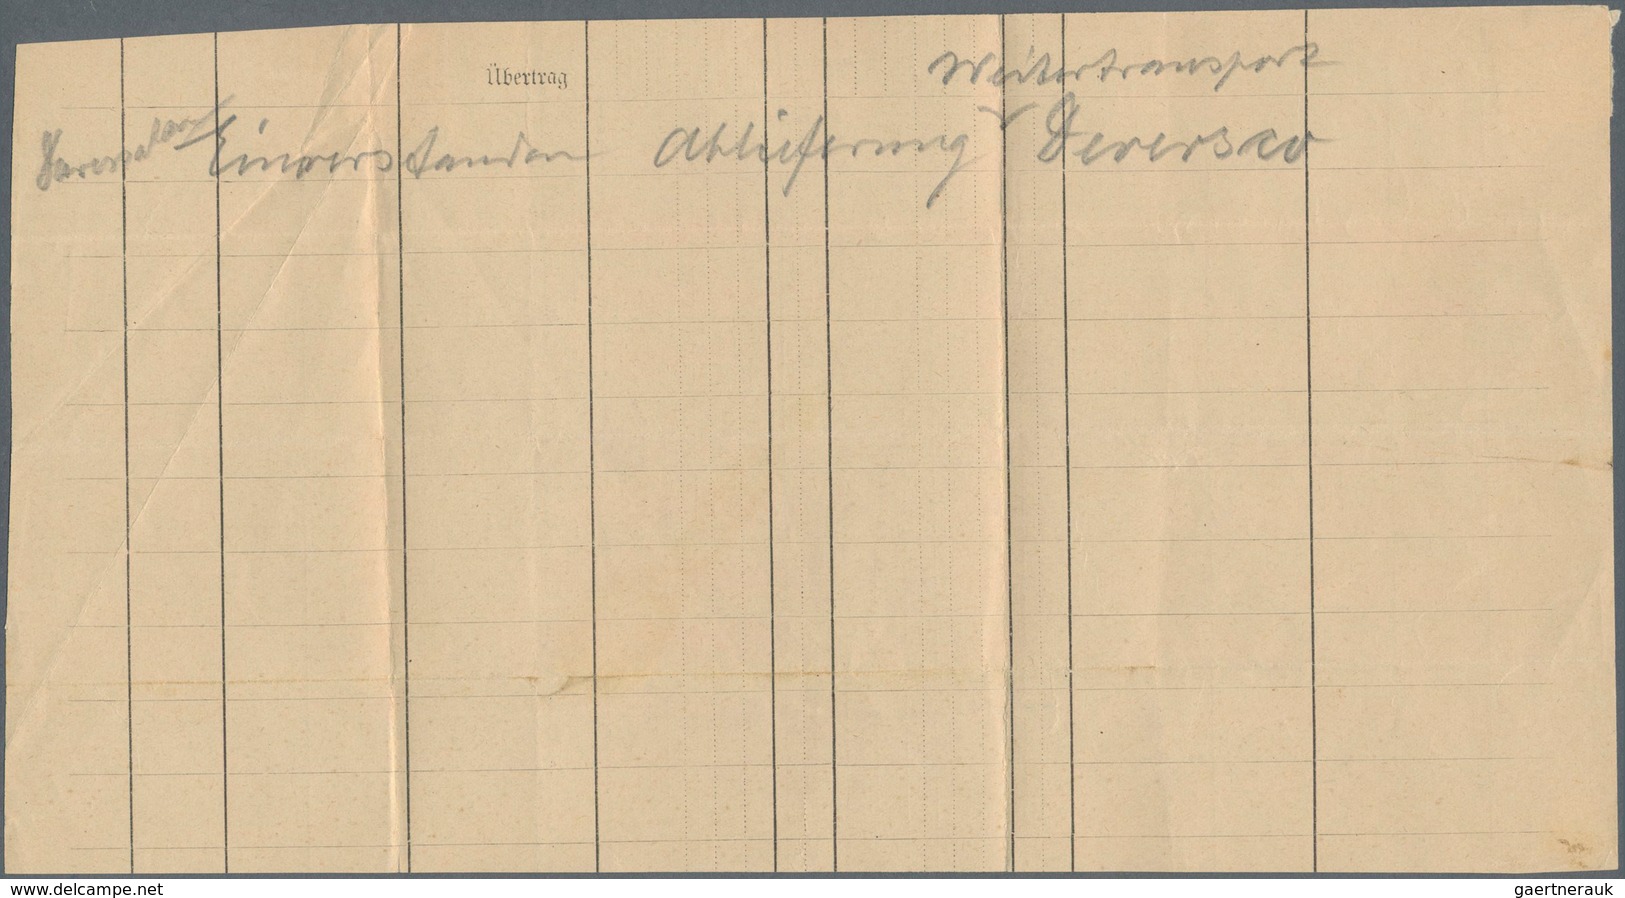 Übertrag
Weitertransport
Daressalam Einverstanden Ablieferung
www.delcampe.net
gaertnerauk